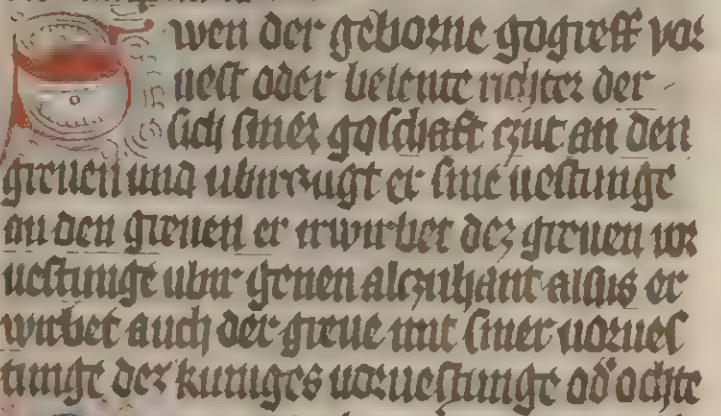 Swen der geborne gogreff vor
uest oder belente richter der
sich siner goschaft czut an den
greuen und ubirczugt er sine uestunge
an den greuen er irwirbet dez greuen vor
uestunge ubir genen alczuhant alsus er
wirbet auch der greue mit siner uorues
tunge dez kuniges uoruestunge od᾽ ochte